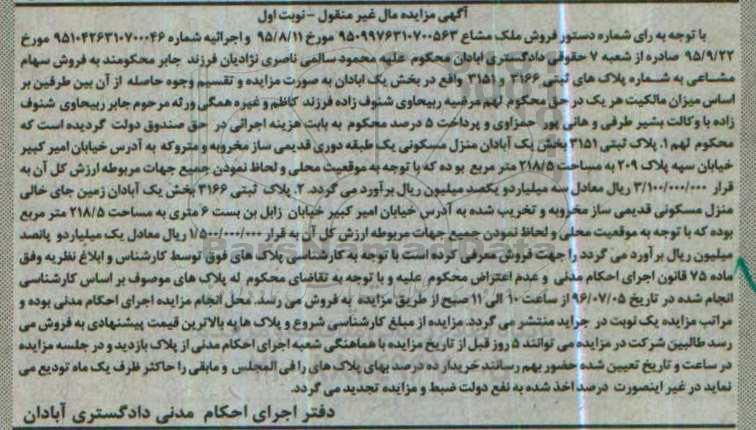 آگهی مزایده مال غیر منقول - نوبت اول
با توجه به رای شماره دستور فروش ملک مشاع ۹۵۰۹۹۷۶۳۱۰۷۰۰۵۶۳ مورخ ۹۵/۸/۱۱ و اجرائیه شماره ۹۵۱۰۴۲۶۳۱۰۷۰۰۰۴۶ مورخ
۹۵/۹/۲۲ صادره از شعبه ۷ حقوقی دادگستری ابادان محکوم علیه محمود سالمی ناصری نژادیان فرزند جابر محکومند به فروش سهام
مشاعی به شماره پلاک های ثبتی ۳۱۶۶ و ۳۱۵۱ واقع در بخش یک ابادان به صورت مزایده و تقسیم وجوه حاصله از آن بین طرفین بر
اساس میزان مالکیت هر یک در حق محکوم لهم مرضیه ربیحاوی شنوف زاده فرزند کاظم و غیره همگی ورثه مرحوم جابر ربیحاوی شنوف
زاده با وکالت بشیر طرفی و هانی پور حمزاوی و پرداخت ۵ درصد محکوم به بابت هزینه اجرائی در حق صندوق دولت گردیده است که
محکوم لهم ۱. پلاک ثبتی ۳۱۵۱ بخش یک آبادان منزل مسکونی یک طبقه دوری قدیمی ساز مخروبه و متروکه به آدرس خیابان امیر کبیر
خیابان سپه پلاک ۲۰۹ به مساحت ۲۱۸/۵ متر مربع بوده که با توجه به موقعیت محلی و لحاظ نمودن جمیع جهات مربوطه ارزش کل آن به
قرار ۳/۱۰۰/۰۰۰/۰۰۰ ریال معادل سه میلیارد و یکصد میلیون ریال برآورد می گردد ۲. پلاک ثبتی ۳۱۶۶ بخش یک آبادان زمین جای خالی
منزل مسکونی قدیمی ساز مخروبه و تخریب شده به آدرس خیابان امیر کبیر خیابان زابل بن بست ۶ متری به مساحت ۲۱۸/۵ متر مربع
بوده که با توجه به موقعیت محلی و لحاظ نمودن جمیع جهات مربوطه ارزش کل آن به قرار ۱/۵۰۰/۰۰۰/۰۰۰ ریال معادل یک میلیارد و پانصد
میلیون ریال برآورد می گردد را جهت فروش معرفی کرده است با توجه به کارشناسی پلاک های فوق توسط کارشناس و ابلاغ نظریه وفق
ماده ۷۵ قانون اجرای احکام مدنی و عدم اعتراض محکوم علیه و با توجه به تقاضای محکوم له پلاک های موصوف بر اساس کارشناسی
انجام شده در تاریخ ۹۶/۰۷/۰۵ از ساعت ۱۰ الی ۱۱ صبح از طریق مزایده به فروش می رسد. محل انجام مزایده اجرای احکام مدنی بوده و
مراتب مزایده یک نوبت در جراید منتشر می گردد. مزایده از مبلغ کارشناسی شروع و پلاک ها به بالاترین قیمت پیشنهادی به فروش می
رسد طالبین شرکت در مزایده می توانند ۵ روز قبل از تاریخ مزایده با هماهنگی شعبه اجرای احکام مدنی از پلاک بازدید و در جلسه مزایده
در ساعت و تاریخ تعیین شده حضور بهم رسانند خریدار ده درصد بهای پلاک های را فی المجلس و مابقی را حداکثر ظرف یک ماه تودیع می
نماید در غیر اینصورت درصد اخذ شده به نفع دولت ضبط و مزایده تجدید می گردد.
دفتر اجرای احکام مدنی دادگستری آبادان